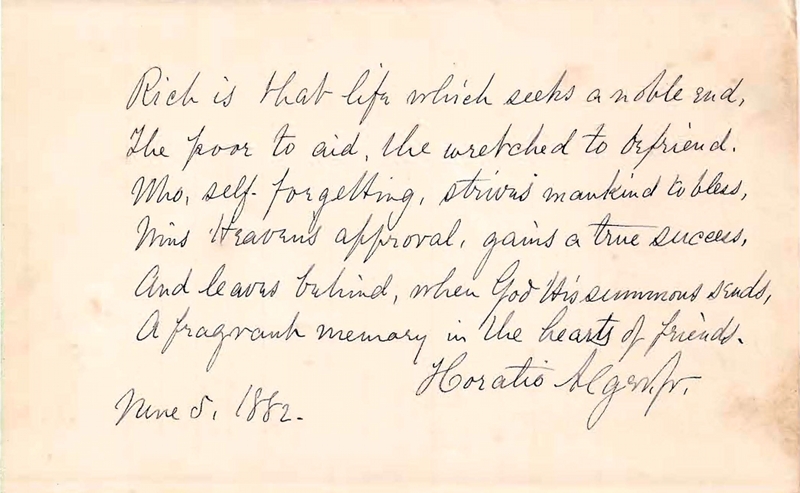 Rich is that life which seeks a noble end,
The poor to aid, the wretched to befriend.
Who, self-forgetting, strives mankind to bless,
Wins Heaven's approval, gains a true success,
And leaves behind, when God His summons sends,
A fragrant memory in the hearts of friends.
Horatio Alger Jr.
June 5, 1882.